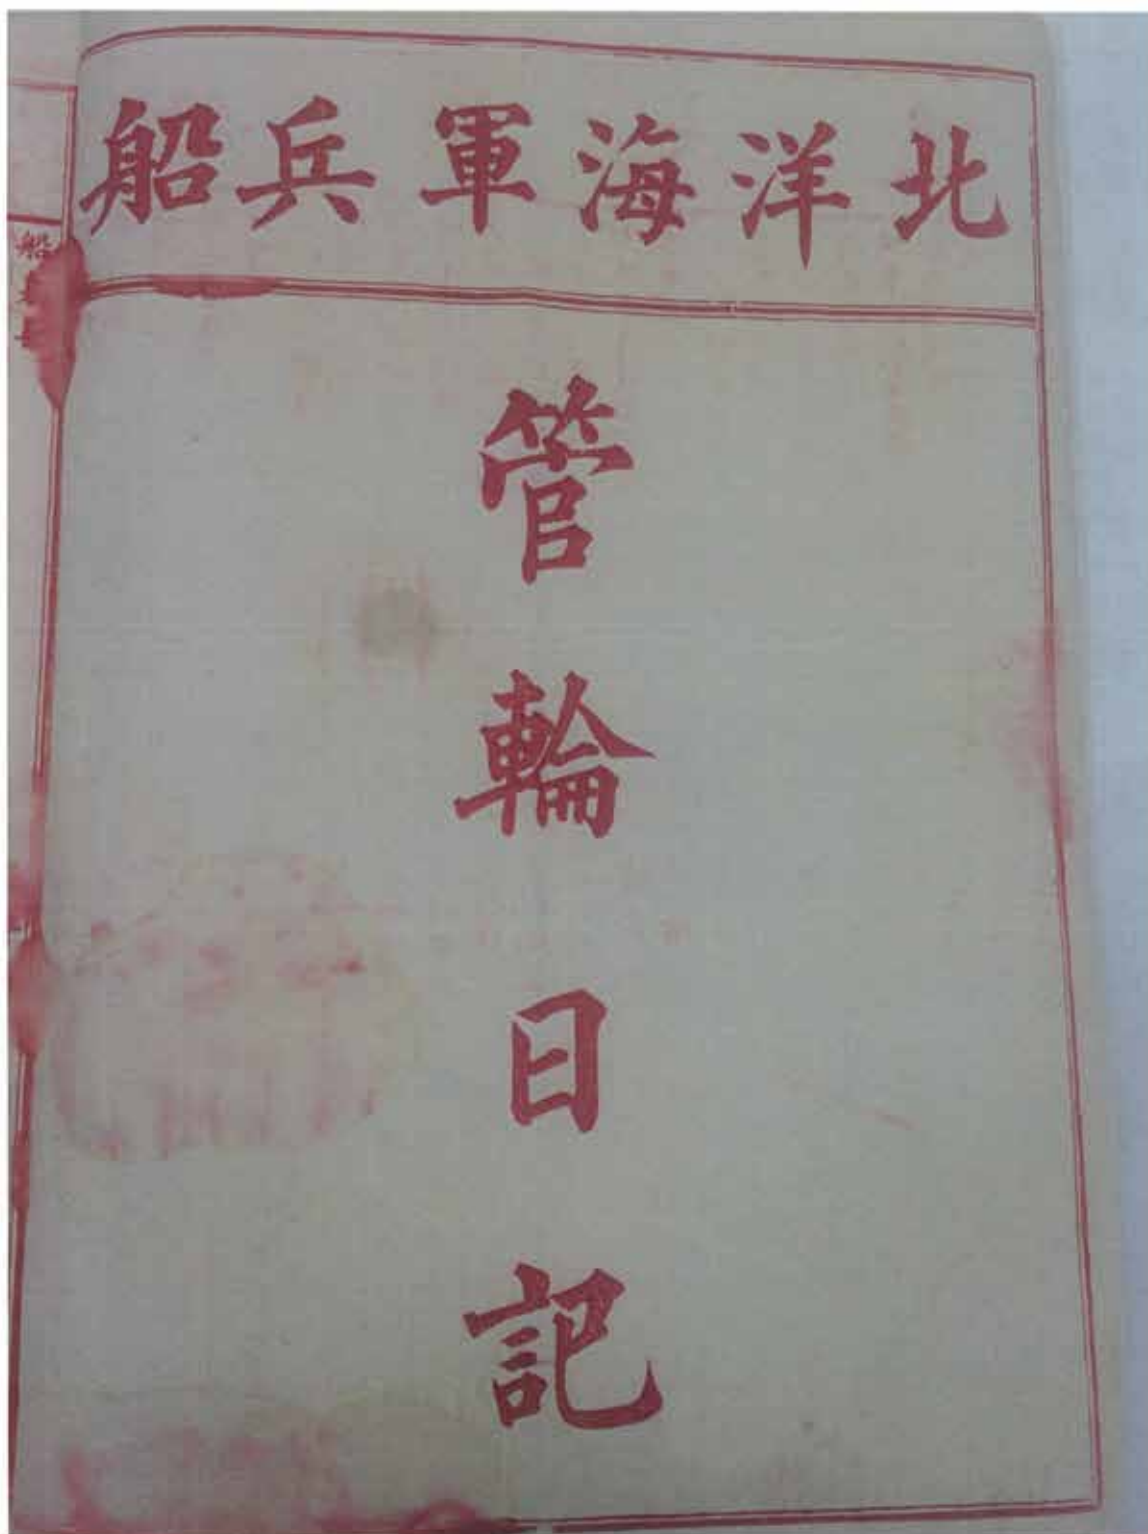 北洋海軍兵船
管輪日記
船